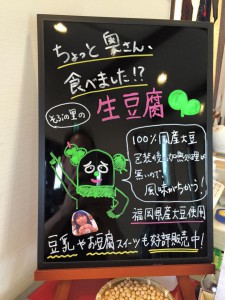 ちょっと奥さん、
食べました!?
そふの里の
生豆腐
100%国産大豆
包装後の加熱処理が
無いので、
風味がちがう!
福岡県産大豆使用
豆乳やお豆腐スイーツも好評販売中!